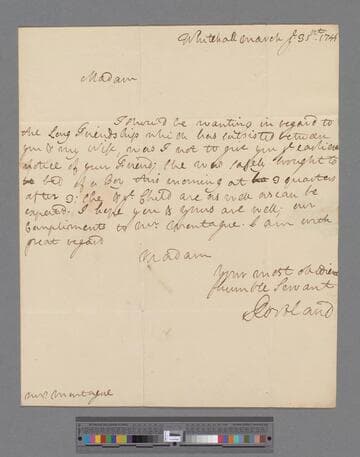 Whitehall March ye 3
Madam
I should be wanting in regard to
the Long Friendship which has subsisted between
you & my Wife, was I not to give you ye earliest
notice of your Friend; she was safely brought to
bed of a Boy this morning at 3 quarters
after 3: she & ye Child are as well as can be
expected: I hope you & yours are well: our
Compliments to Mr Montague. I am with
great regard
Madam
Your most obedient
humble Servant
Portland
Mrs Montague